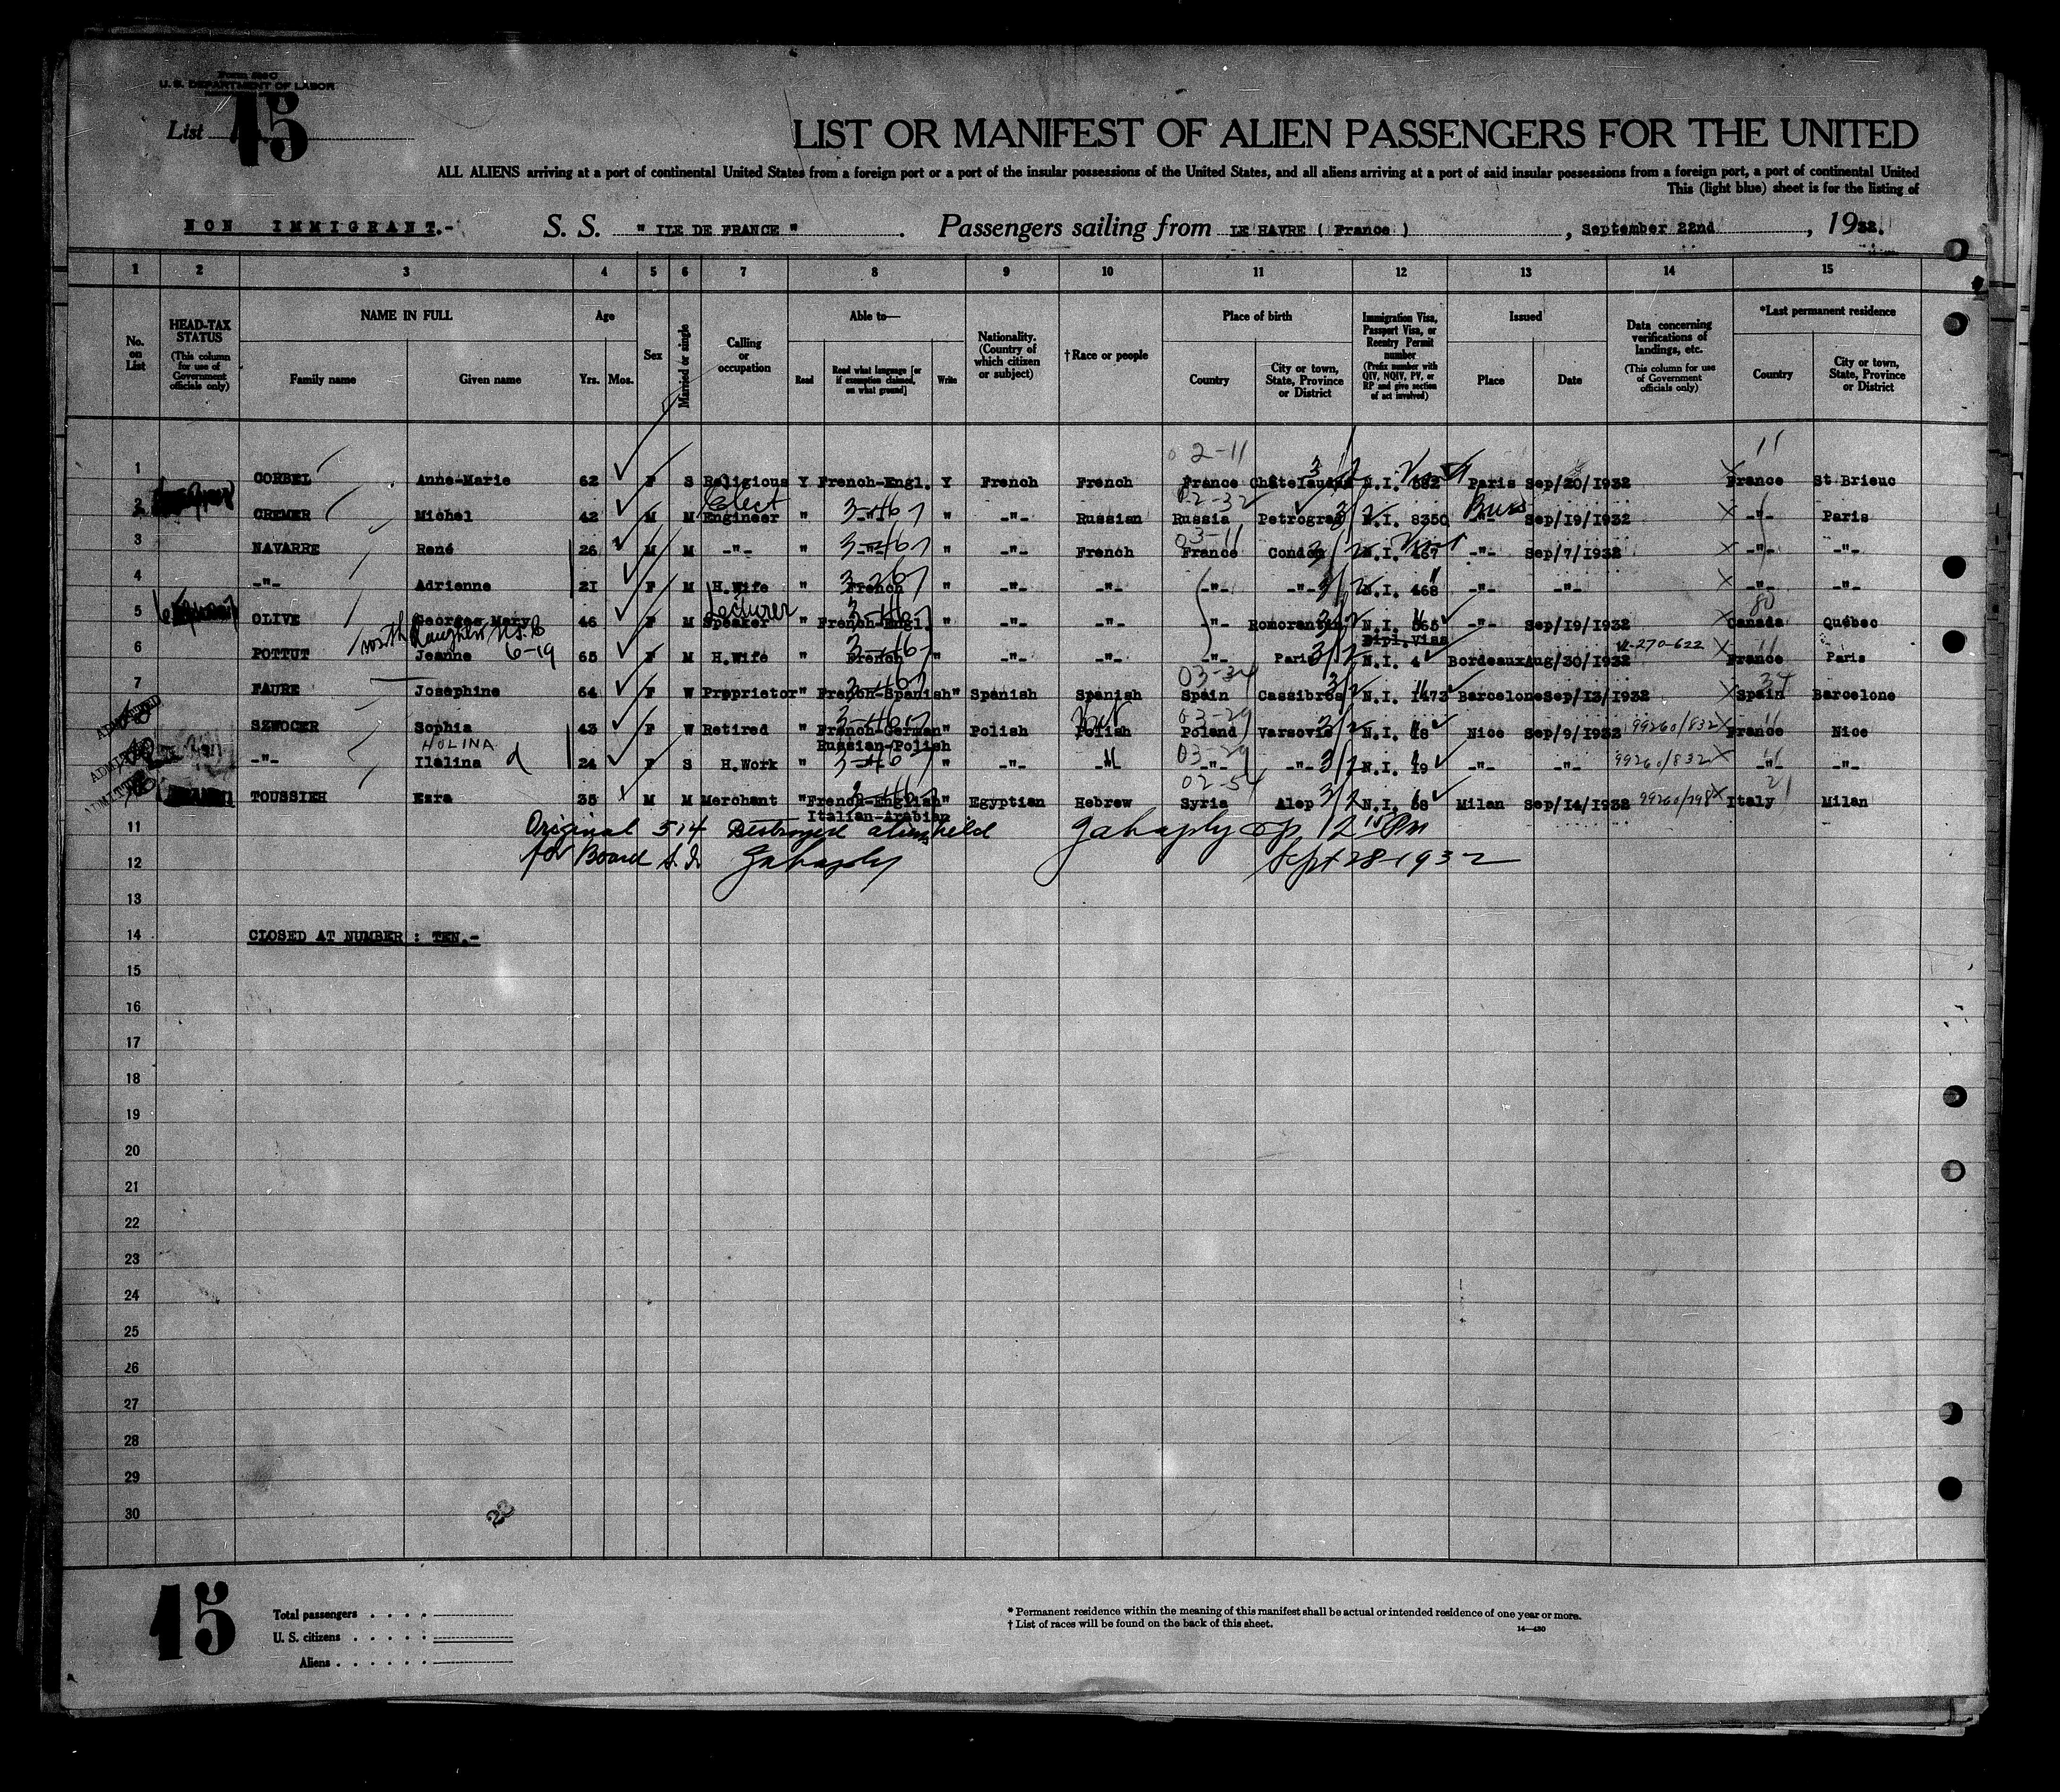 Form 500 C
U. S. DEPARTMENT OF LABOR
List 15
LIST OR MANIFEST OF ALIEN PASSENGERS FOR THE UNITED
ALL ALIENS arriving at a port of continental United States from a foreign port or a port of the insular possessions of the United States, and all aliens arriving at a port of said insular possessions from a foreign port, a port of continental United
This (light blue) sheet is for the listing of
NON IMMIGRANT.- S. S. " ILE DE FRANCE " . Passengers sailing from LE HAVRE ( France ) , September 22nd , 1932.
1 2 3 4 5 6 7 8 9 10 11 12 13 14 15
No. on List
HEAD-TAX STATUS (This column for use of Government officials only)
NAME IN FULL Family name Given name
Age Yrs. Mos.
Sex
Married or single
Calling or occupation
Able to— Read Read what language [or if exemption claimed, on what ground] Write
Nationality. (Country of which citizen or subject)
†Race or people
Place of birth Country City or town, State, Province or District
Immigration Visa, Passport Visa, or Reentry Permit number (Prefix number with QIV, NQIV, PV, or RP and give section of act involved)
Issued Place Date
Data concerning verifications of landings, etc. (This column for use of Government officials only)
*Last permanent residence Country City or town, State, Province or District
02-11 11
1 CORBEL Anne-Marie 62 F S Religious Y French-Engl. Y French French France N.I. 582 Paris Sep/20/1932 France St Brieuc
Elect 02-32
2 CREMER Michel 42 M M Engineer " 3-46 " -"- Russian Russia Petrograd N.I. 8350 -"- Sep/19/1932 -"- Paris
03-11
3 NAVARRE René 26 M M -"- " -"- " -"- French France Condom N.I. 467 -"- Sep/7/1932 -"- -"-
4 -"- Adrienne 21 F M H.Wife " French " -"- -"- -"- -"- N.I. 468 -"- -"- -"- -"-
Lecturer 80
5 OLIVE Georges Mary 46 F M Speaker " French-Engl. " -"- -"- -"- Romorantin N.I. 565 -"- Sep/19/1932 Canada Québec
with daughter 6-19 Dipl.Visa
6 POTTUT Jeanne 65 F M H.Wife " French " -"- -"- -"- Paris N.I. 4 Bordeaux Aug/30/1932 V-270-622 France Paris
03-34 34
7 FAURE Josephine 64 F W Proprietor " French-Spanish " Spanish Spanish Spain Cassibros N.I. 1473 Barcelone Sep/13/1932 Spain Barcelone
ADMITTED
Heb 03-29 11
8 SZWOCER Sophia 43 F W Retired " French-German " Polish Polish Poland Varsovie N.I. 18 Nice Sep/9/1932 99260/832 France Nice
HOLINA Russian-Polish 03-29
9 -"- Ilalina 24 F S H.Work " " -"- -"- -"- -"- N.I. 19 -"- -"- 99260/832 -"- -"-
ADMITTED
02-54 21
10 TOUSSIEH Ezra 35 M M Merchant " French-English " Egyptian Hebrew Syria Alep N.I. 68 Milan Sep/14/1932 99260/798 Italy Milan
ADMITTED Italian-Arabian
11 Original 514 Destroyed alien held
12 for Board S.I. Sept 28-1932
13
14 CLOSED AT NUMBER : TEN.-
15
16
17
18
19
20
21
22
23
24
25
26
27
28
29
30
22
15
Total passengers
U. S. citizens
Aliens
* Permanent residence within the meaning of this manifest shall be actual or intended residence of one year or more.
† List of races will be found on the back of this sheet.
14—430